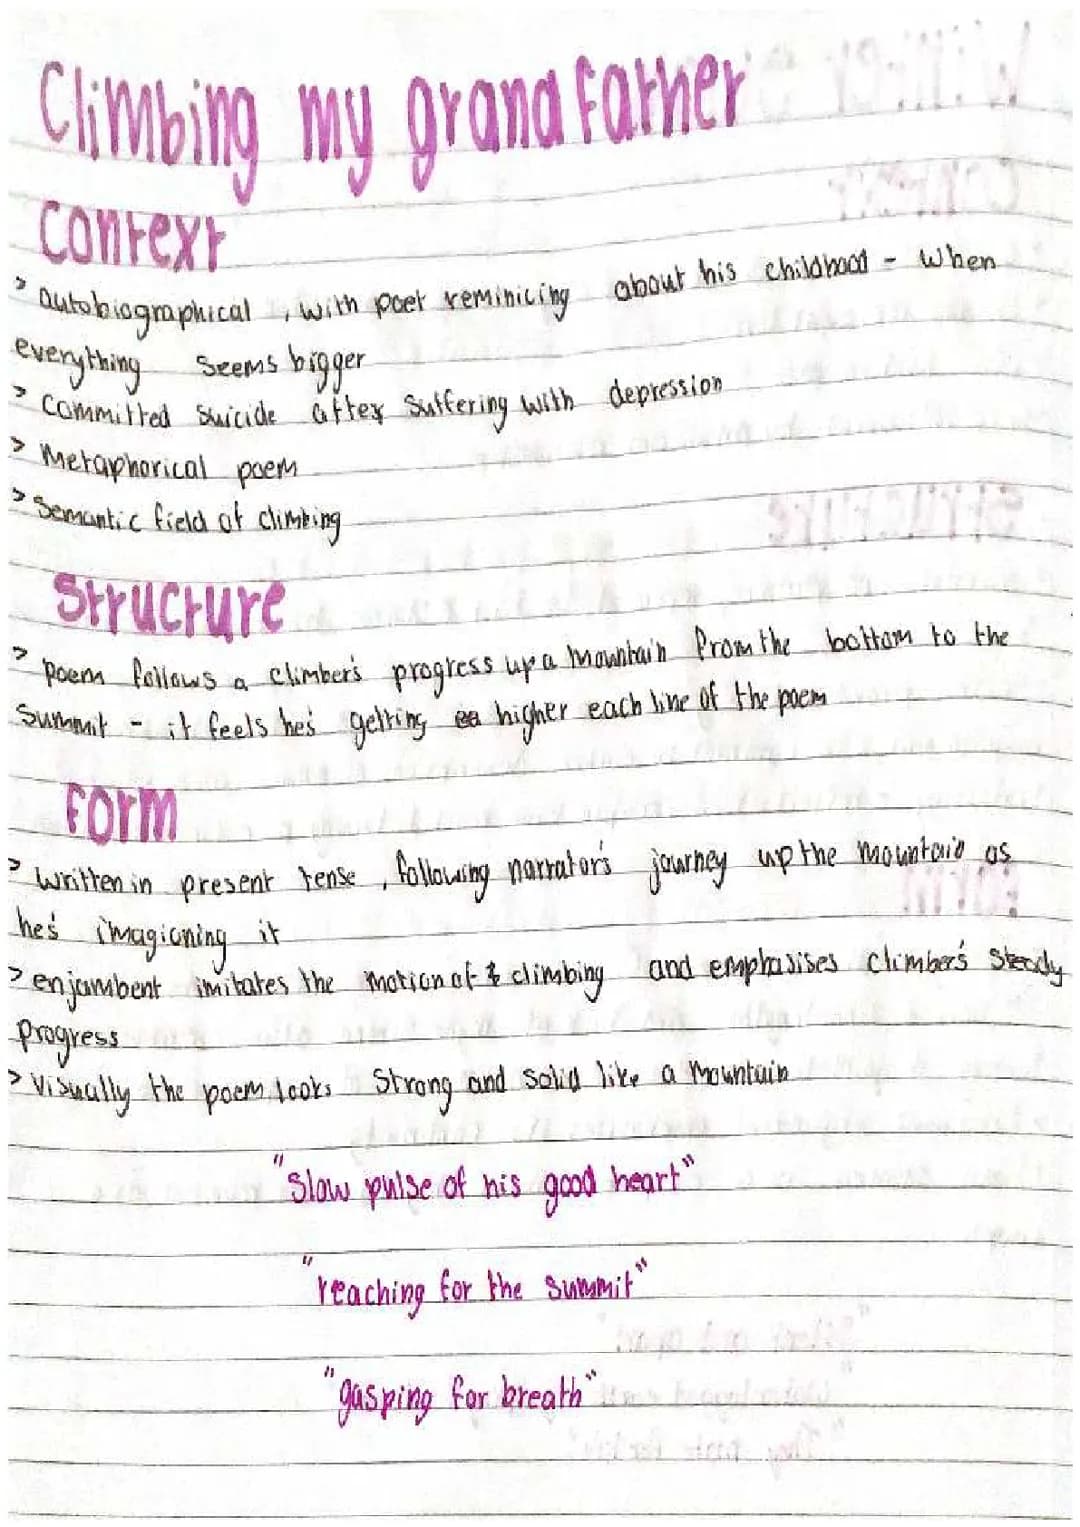 Climbing my grandfather
Context
> autobiographical, with poet reminicing about his childhood - when
everything seems bigger
> Committed suicide after suffering with depression
> Metaphorical poem
> Semantic field of climbing
Structure
> poem follows a climber's progress up a mountain from the bottom to the
summit - it feels he's getting higher each line of the poem
Form
> written in present tense, following narrator's journey up the mountain as
he's imagioning it
> enjambent imitates the motion of climbing and emphasises climber's steady
progress
> Visually the poem looks strong and solid like a mountain
"Slow pulse of his good heart"
"reaching for the summit"
"gasping for breath"